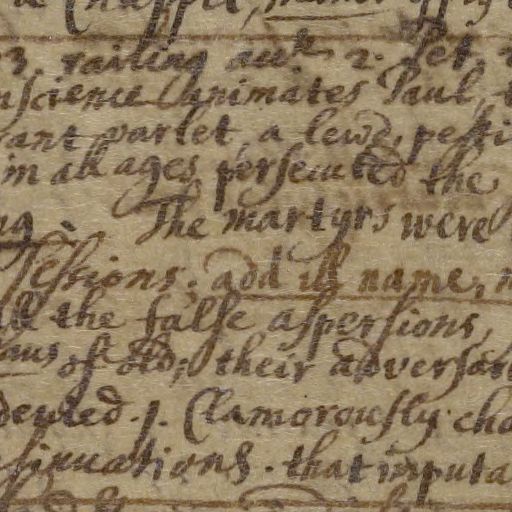 a Chappel,
3. railing auth 2. Set,
nscience animates Paul,
ant varlet, a lewd, pesti
in all ages persecuted the
ng. The martyrs were
Sessions, add ill name,
all the false aspersions,
of old; their adversar
dented. 1. Clamorously cha
sinuations. that imputa